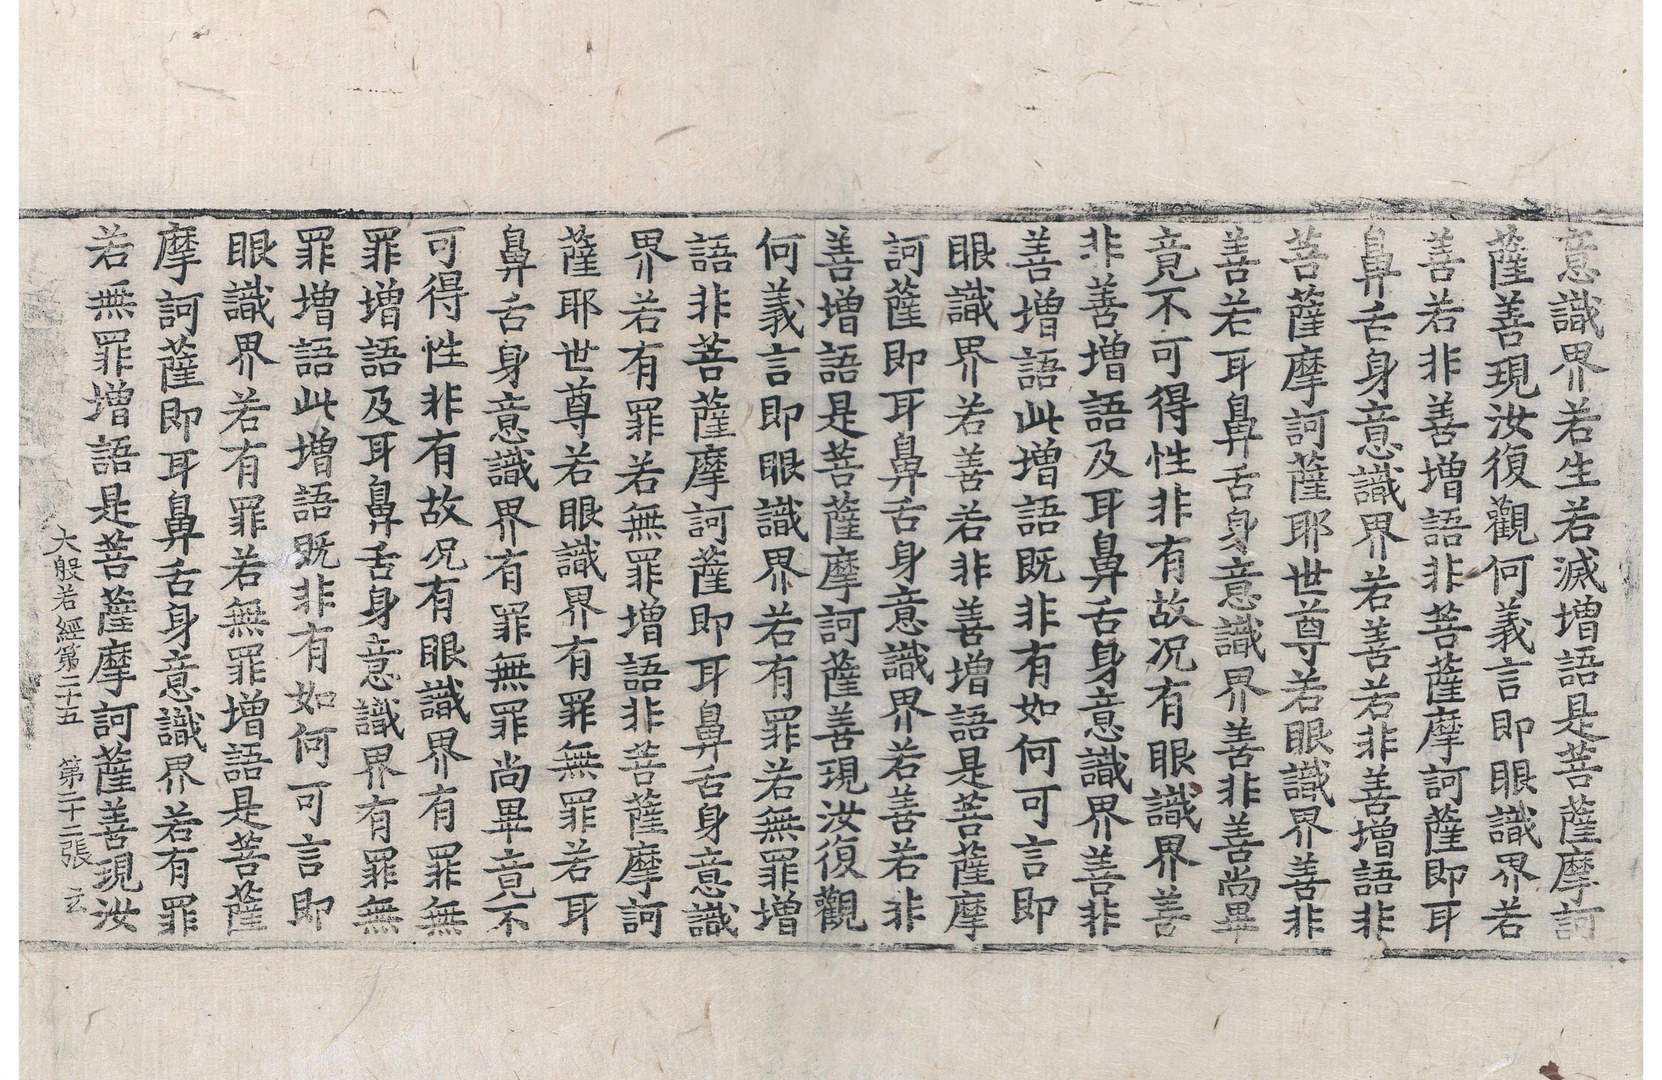 意識界若生若滅增語是菩薩摩訶
薩善現汝復觀何義言即眼識界若
善若非善增語非菩薩摩訶薩即耳
鼻舌身意識界若善若非善增語非
菩薩摩訶薩耶世尊若眼識界善非
善若耳鼻舌身意識界善非善尚畢
竟不可得性非有故况有眼識界善
非善增語及耳鼻舌身意識界善非
善增語此增語既非有如何可言即
眼識界若善若非善增語是菩薩摩
訶薩即耳鼻舌身意識界若善若非
善增語是菩薩摩訶薩善現汝復觀
何義言即眼識界若有罪若無罪增
語非菩薩摩訶薩即耳鼻舌身意識
界若有罪若無罪增語非菩薩摩訶
薩耶世尊若眼識界有罪無罪若耳
鼻舌身意識界有罪無罪尚畢竟不
可得性非有故况有眼識界有罪無
罪增語及耳鼻舌身意識界有罪無
罪增語此增語既非有如何可言即
眼識界若有罪若無罪增語是菩薩
摩訶薩即耳鼻舌身意識界若有罪
若無罪增語是菩薩摩訶薩善現汝
大般若經第二十五 第二十二張 玄